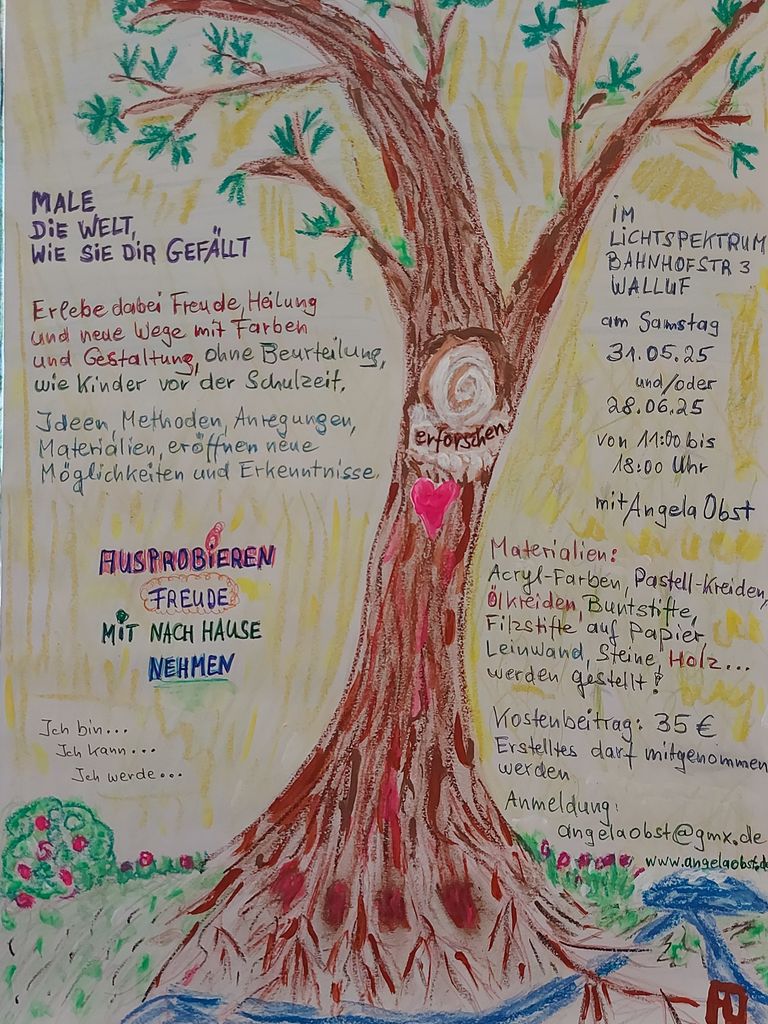 MALE
DIE WELT,
WIE SIE DIR GEFÄLLT
Erlebe dabei Freude, Heilung
und neue Wege mit Farben
und Gestaltung, ohne Beurteilung,
wie Kinder vor der Schulzeit.
Ideen, Methoden, Anregungen,
Materialien, eröffnen neue
Möglichkeiten und Erkenntnisse.
AUSPROBIEREN
FREUDE
MIT NACH HAUSE
NEHMEN
Ich bin...
Ich kann...
Ich werde...
erforschen
IM
LICHTSPEKTRUM
BAHNHOFSTR 3
WALLUF
am Samstag
31.05.25
und/oder
28.06.25
von 11:00 bis
18:00 Uhr
mit Angela Obst
Materialien:
Acryl-Farben, Pastell-Kreiden,
Ölkreiden, Buntstifte,
Filzstifte auf Papier
Leinwand, Steine, Holz...
werden gestellt!
Kostenbeitrag: 35 €
Erstelltes darf mitgenommen
werden
Anmeldung:
angelaobst@gmx.de
www.angelaobst.de